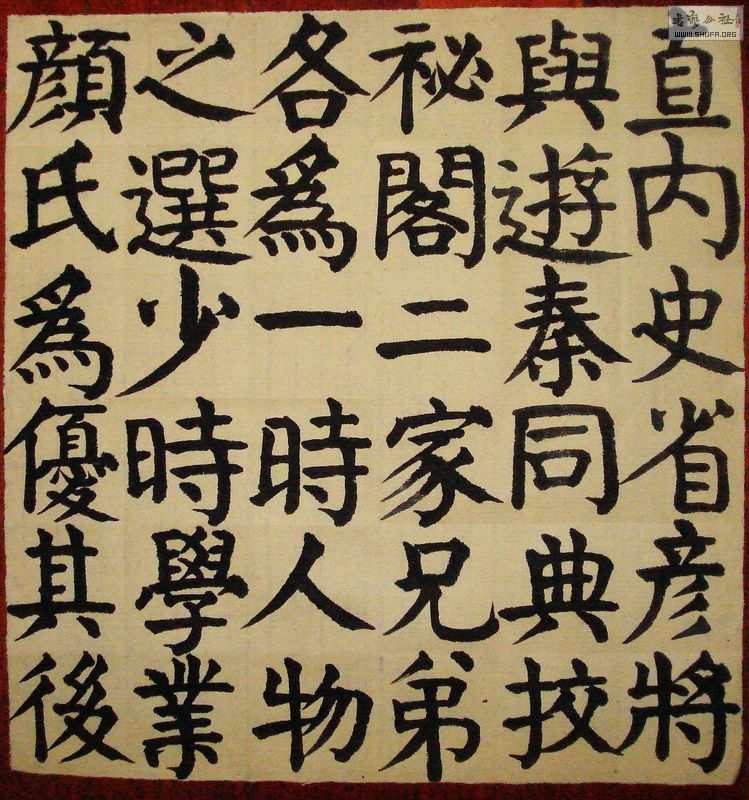 直内史省彦將
與遊秦同典挍
祕閣二家兄弟
各爲一時人物
之選少時學業
顏氏爲優其後
WWW.SHUFA.ORG